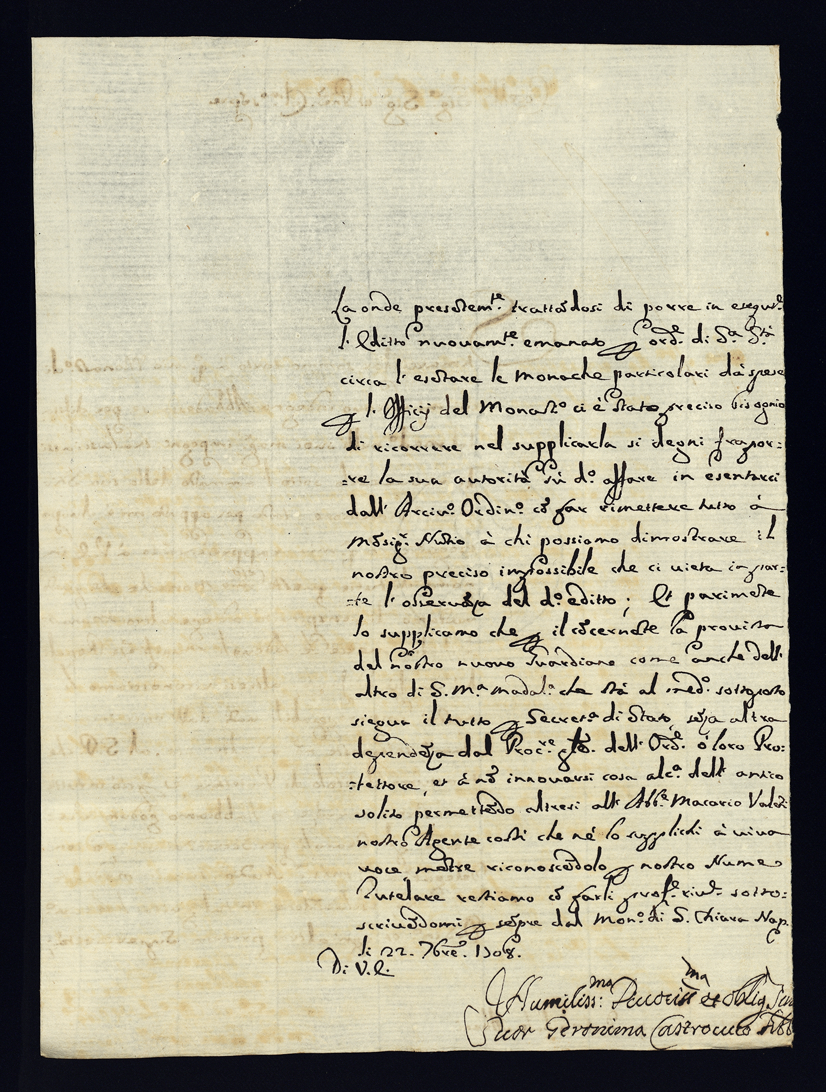 La onde presẽtem.te trattãdosi di porre in esegut.e
l'Editto nuouam.te emanato p ord.e di S.a S.tà
circa l'esẽtare le monache particolari da spese
p l'Officij del Monast.o ci è stato preciso bisogno
di ricorrere nel supplicarla si degni frapor:
:re la sua autorità sù d.o affare in esentarci
dall' Arciv.o Ordin.o cõ far rimettere tutto à
Mõsig.r Nutio à chi possiamo dimostrare il
nostro preciso impossibile che ci uieta in par:
:te l'osseruãza del d.o editto; Et parimẽte
lo supplicamo che p il cõcernẽte la prouista
del nostro nuouo Guardiano come anche dell'
altro di S. M.a Madal.a che stà al med.o sottoposto
siegua il tutto p Secret.a di Stato, sẽza altra
dependẽza dal Proc.re dell' Ord.e ò loro Pro:
:tettore, et à nõ innouarsi cosa alc.a dell' antico
solito permettẽdo altresi all' Abb.e Macario Valezi
nostro Agente costì che nè lo supplichi à uiua
uoce, mẽtre riconoscẽdolo p nostro Nume
Tutelare restiamo cõ farli prof.e riu.e sotto:
scriuẽdomi p sẽpre dal Mon.o di S. Chiara Nap.
li 22. 7bre. 1708.
Di V.E.
Humiliss:ma Deuotiss.ma et oblig.
Suor Geronima Castrocucco Abb